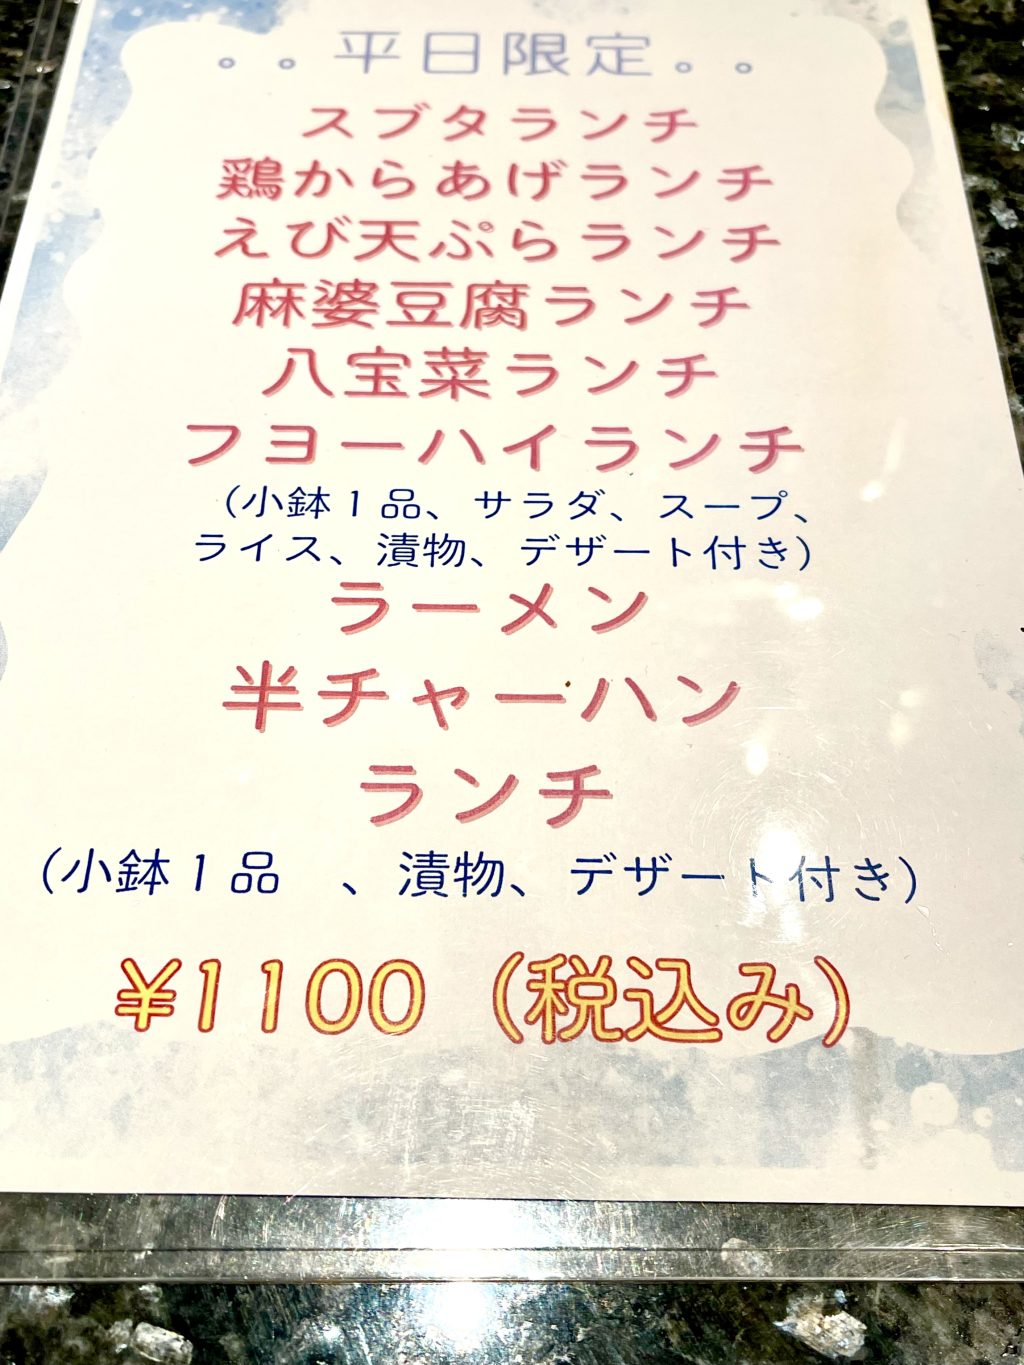 。。平日限定。。
スブタランチ
鶏からあげランチ
えび天ぷらランチ
麻婆豆腐ランチ
八宝菜ランチ
フヨーハイランチ
（小鉢１品、サラダ、スープ、
ライス、漬物、デザート付き）
ラーメン
半チャーハン
ランチ
（小鉢１品　、漬物、デザート付き）
¥1100（税込み）